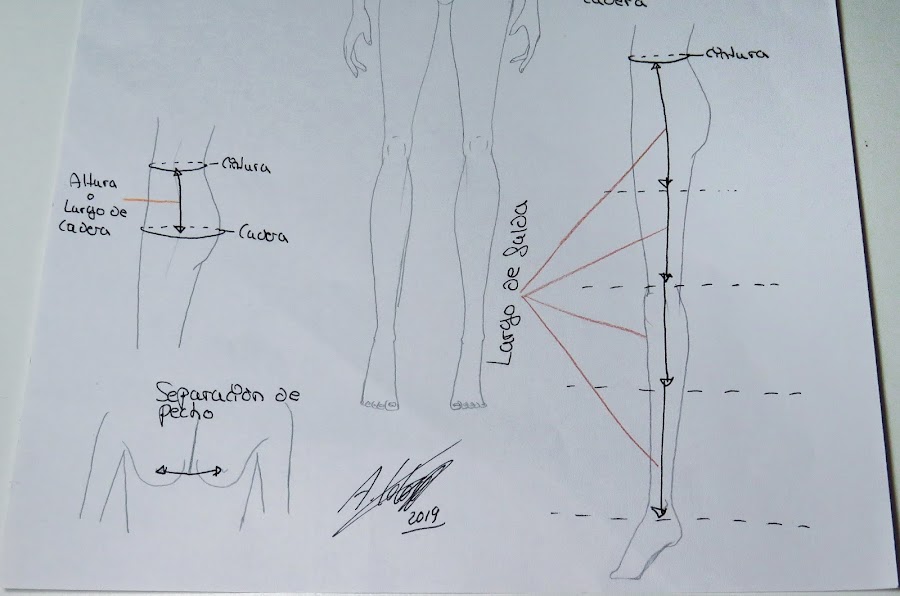 cadera
cintura
cintura
Altura
o
Largo de
cadera
Cadera
Largo de falda
Separación de
pecho
2019